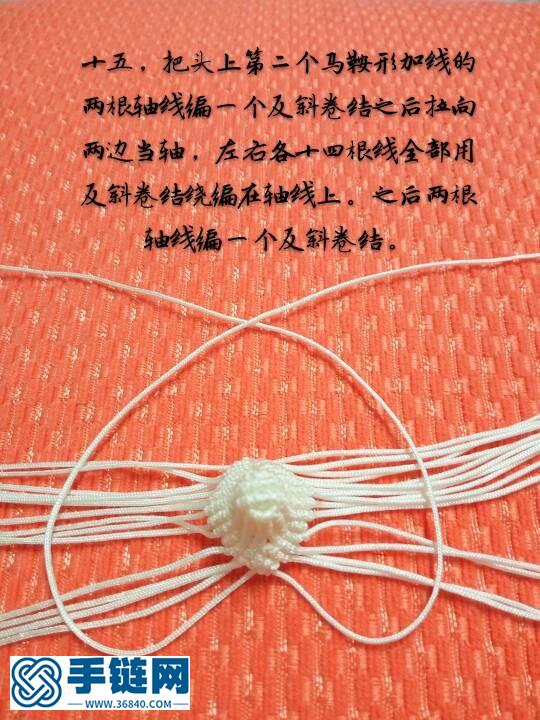 十五，把头上第二个马鞍形加线的
两根轴线编一个反斜卷结之后拉向
两边当轴，左右各十四根线全部用
反斜卷结绕编在轴线上。之后两根
轴线编一个反斜卷结。
手链网
WWW.36840.COM